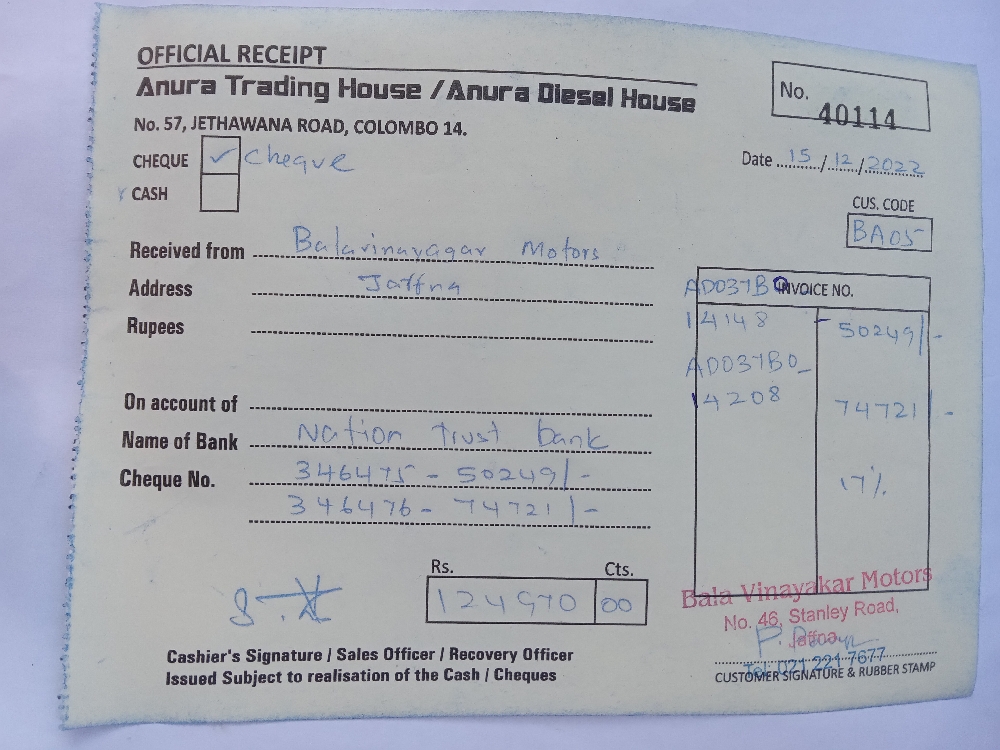 OFFICIAL RECEIPT
Anura Trading House / Anura Diesel House
No. 57, JETHAWANA ROAD, COLOMBO 14.
No. 40114
CHEQUE ✓ Cheque
CASH
Date 15/12/2022
CUS. CODE
BA05
Received from Balavinayagar Motors
Address Jaffna
Rupees
INVOICE NO.
AD037B0
14148 - 50249/-
AD037B0_
14208 74721/-
17%
On account of
Name of Bank Nation trust bank
Cheque No. 346475 - 50249/-
346476 - 74721/-
Rs. Cts.
124970 00
Bala Vinayakar Motors
No. 46, Stanley Road,
Jaffna
Tel: 021 221 7677
Cashier's Signature / Sales Officer / Recovery Officer
Issued Subject to realisation of the Cash / Cheques
CUSTOMER SIGNATURE & RUBBER STAMP